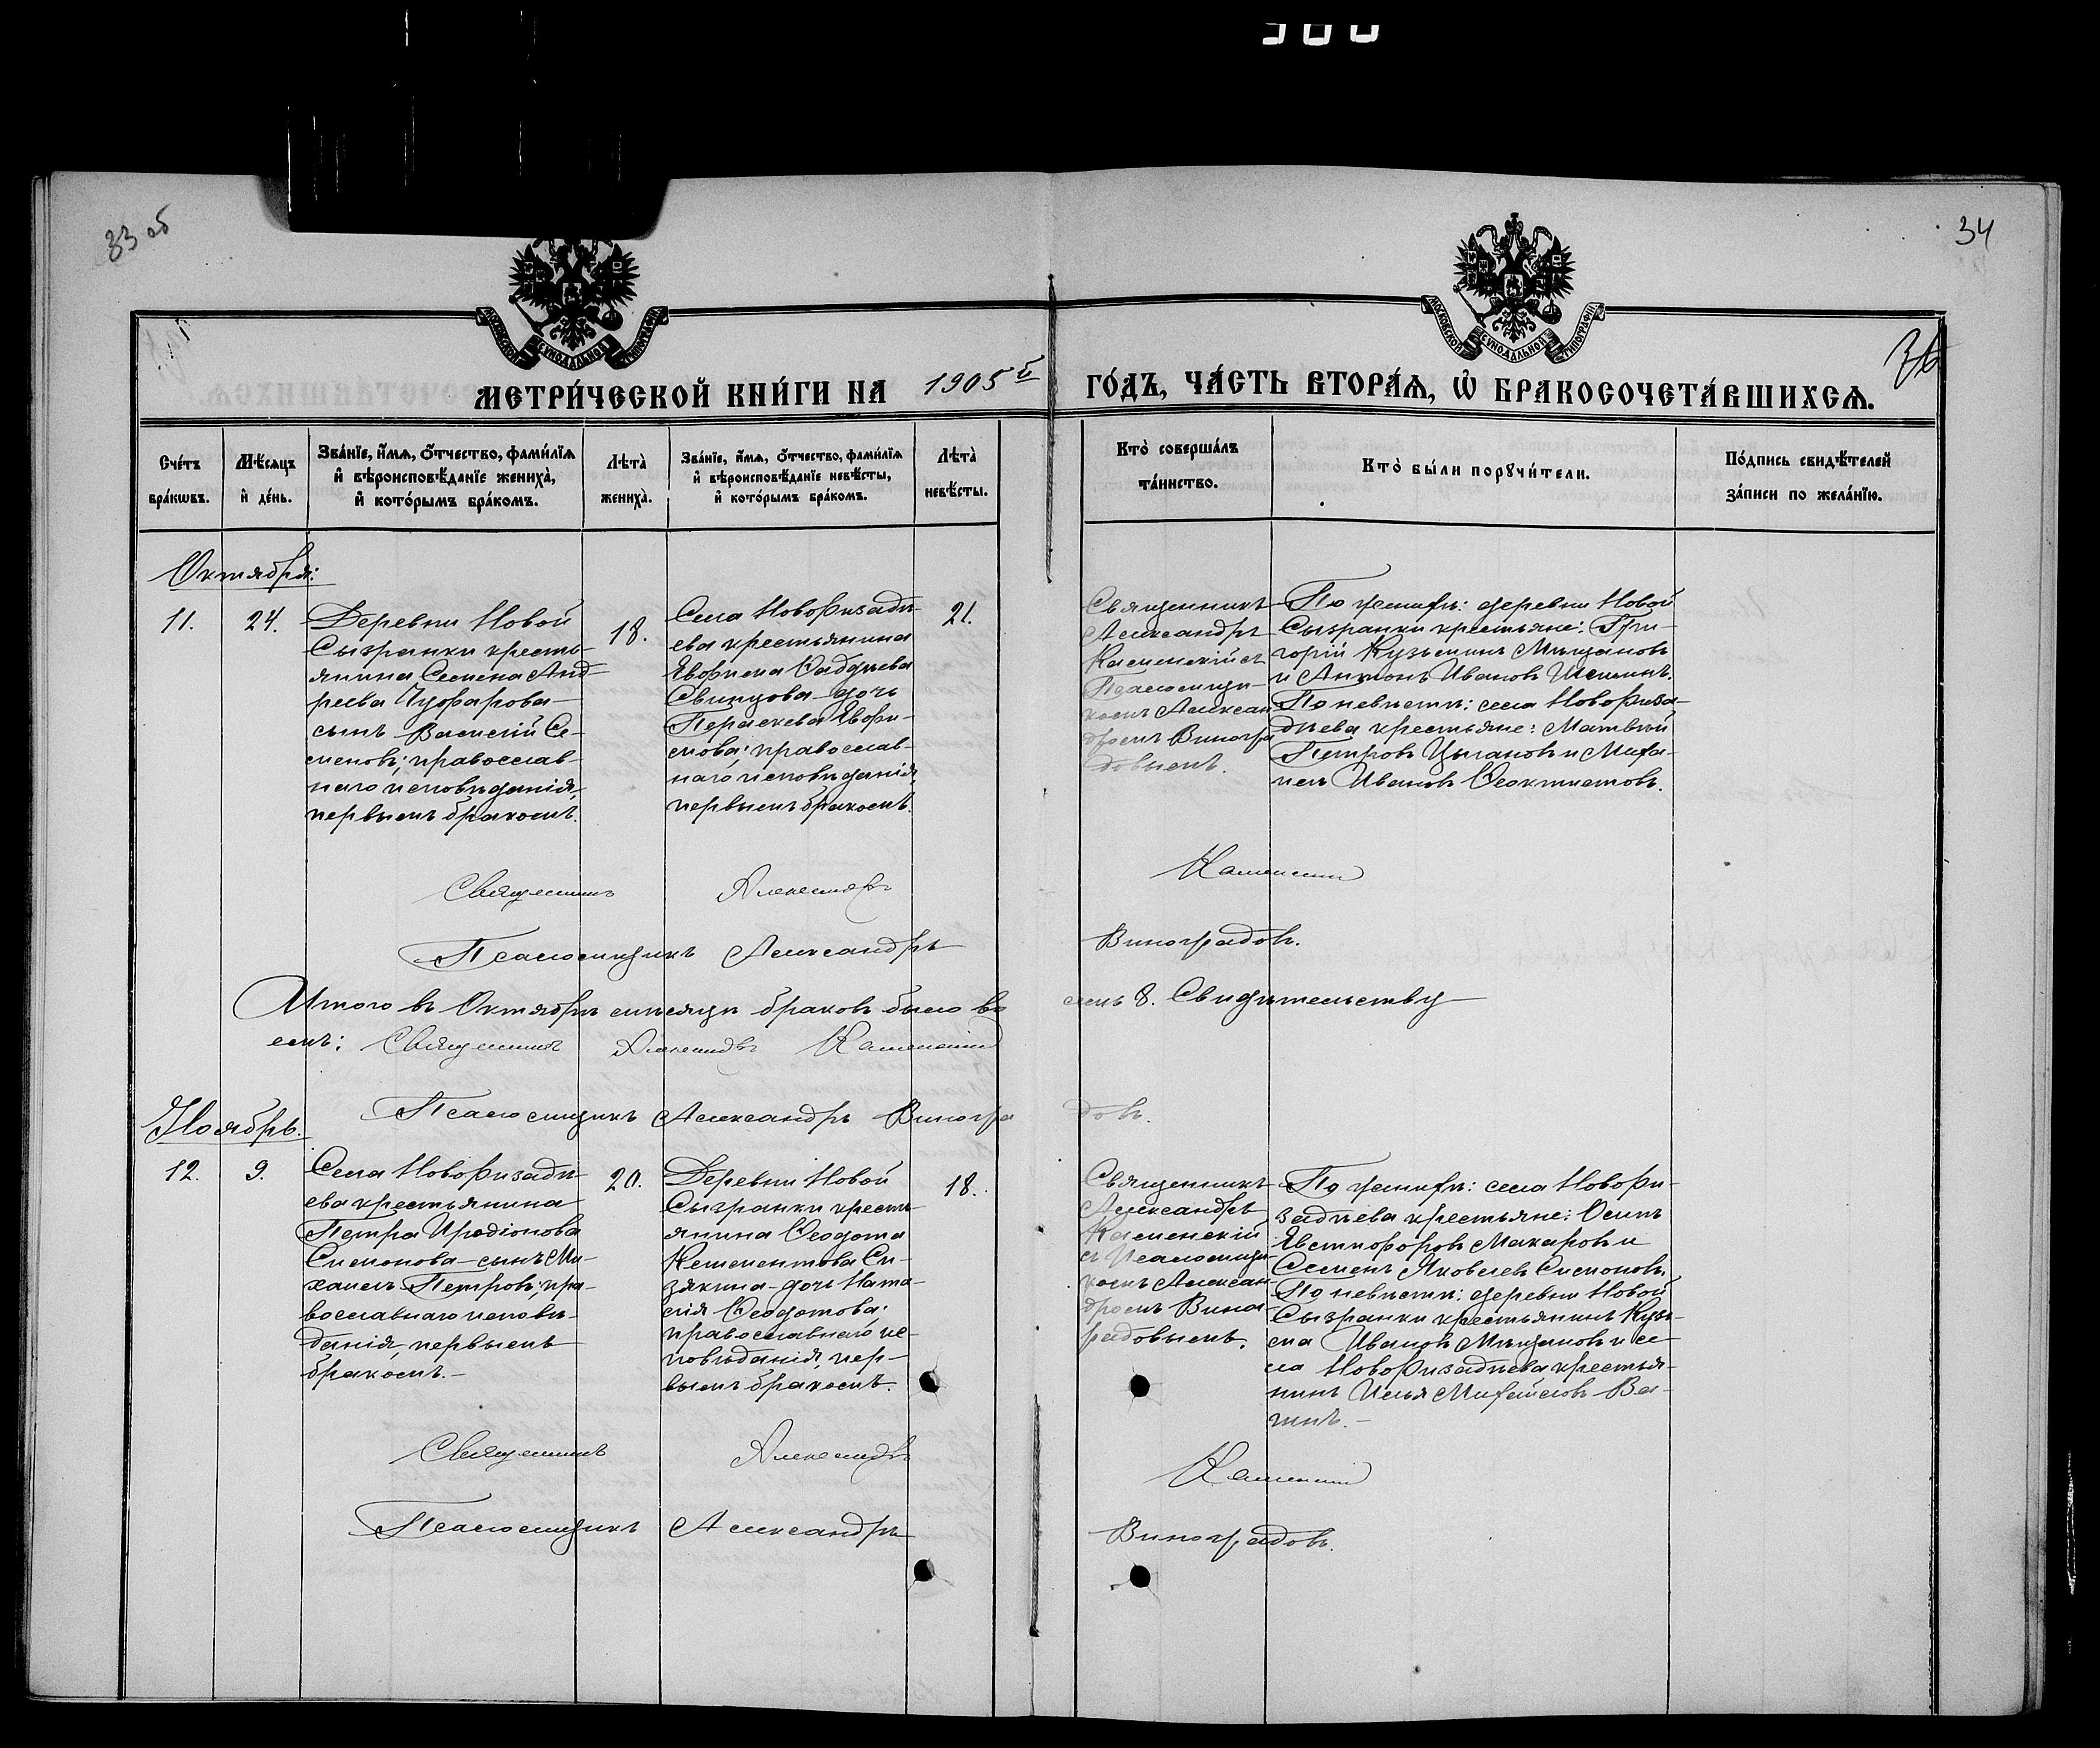 33 об
34
36
МЕТРИ́ЧЕСКОЙ КНИ́ГИ НА 1905й ГО́ДЪ, ЧА́СТЬ ВТОРА́Я, Ѡ БРАКОСОЧЕТА́ВШИХСЯ.
Сче́тъ бра́кѡвъ.
Мѣ́сяцъ и де́нь.
Зва́нїе, и́мя, о́тчество, фами́лїя и вѣроисповѣ́данїе жениха̀, и кото́рымъ бра́комъ.
Лѣта̀ жениха̀.
Зва́нїе, и́мя, о́тчество, фами́лїя и вѣроисповѣ́данїе невѣ́сты, и кото́рымъ бра́комъ.
Лѣта̀ невѣ́сты.
Кто̀ соверша́лъ та́инство.
Кто̀ бы́ли порꙋчи́тели.
По́дпись свидѣ́телей за́писи по жела́нїю.
Октября:
11.
24.
Деревни Новой
Сызранки кресть-
янина Семена Анд-
реева Чуфарова-
сынъ Василій Се-
меновъ; православ-
наго исповѣданія,
первымъ бракомъ.
18.
Села Новофизадѣ-
ева крестьянина
Евфима Ѳаддѣева
Свинцова-дочь
Параскева Евфи-
мова; православ-
наго исповѣданія,
первымъ бракомъ.
21.
Священникъ
Александръ
Каменскій съ
Псаломщи-
комъ Алексан
дромъ Виногра
довымъ.
По женихѣ: деревни Новой
Сызранки крестьяне: Гри-
горій Кузьминъ Мѣщановъ
и Антонъ Ивановъ
По невѣстѣ: села Новофиза-
дѣева крестьяне: Матвѣй
Петровъ Цыгановъ и Миха-
илъ Ивановъ Ѳеоктистовъ.
Священникъ Александръ Каменскій
Псаломщикъ Александръ Виноградовъ.
Итого въ Октябрѣ мѣсяцѣ браковъ было во
семь 8. Свидѣтельству-
емъ: Священникъ Александръ Каменскій
Псаломщикъ Александръ Виногра
довъ.
Ноябрь.
12.
9.
Села Новофизадѣ-
ева крестьянина
Петра Иродіонова
Симонова-сынъ Ми-
хаилъ Петровъ; пра-
вославнаго исповѣ-
данія, первымъ
бракомъ.-
20.
Деревни Новой
Сызранки кресть-
янина Ѳеодота
Климентова Си-
зякина-дочь Ната-
лія Ѳеодотова;
православнаго ис-
повѣданія, пер-
вымъ бракомъ.
18.
Священникъ
Александръ
Каменскій
съ Псаломщи-
комъ Алексан-
дромъ Вина-
градовымъ.
По женихѣ: села Новофи-
задѣева крестьяне: Осипъ
Макаровъ и
Семенъ Яковлевъ Симоновъ.
По невѣстѣ: деревни Новой
Сызранки крестьянинъ Кузь-
ма Ивановъ Мѣщановъ и се-
ла Новофизадѣева крестья-
нинъ Илья Михайловъ
Священникъ Александръ Каменскій
Псаломщикъ Александръ Виноградовъ.